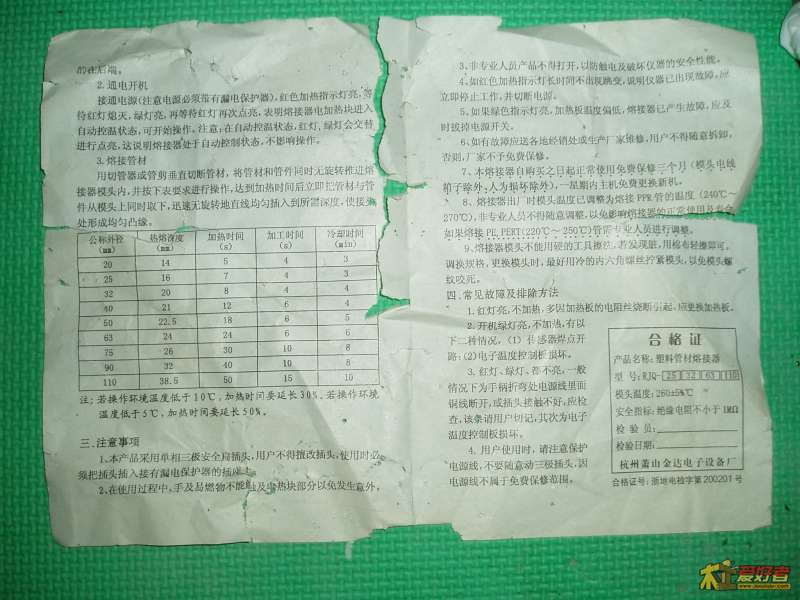 的在后端。
2.通电开机
接通电源(注意电源必须带有漏电保护器),红色加热指示灯亮,等
待红灯熄灭,绿灯亮,再等待红灯再次点亮,表明熔接器电加热块进入
自动控温状态,可开始操作。注意,在自动控温状态,红灯,绿灯会交替
进行点亮,这说明熔接器处于自动控制状态,不影响操作。
3.熔接管材
用切管器或管剪垂直切断管材,将管材和管件同时无旋转推进熔
接器模头内,并按下表要求进行操作,达到加热时间后立即把管材与管
件从模头上同时取下,迅速无旋转地直线均匀插入到所需深度,使接头
处形成均匀凸缘。
公称外径(mm) 热熔深度(mm) 加热时间(s) 加工时间(s) 冷却时间(min)
20 14 5 4 3
25 16 7 4 3
32 20 8 4 4
40 21 12 6 4
50 22.5 18 6 5
63 24 24 6 6
75 26 30 10 8
90 32 40 10 8
110 38.5 50 15 10
注:若操作环境温度低于10℃,加热时间要延长30%。若操作环境
温度低于5℃,加热时间要延长50%。
三.注意事项
1.本产品采用单相三极安全扁插头,用户不得擅改插头,使用时必
须把插头插入接有漏电保护器的插座上。
2.在使用过程中,手及易燃物不能触及电热块部分以免发生意外,
3.非专业人员产品不得打开,以防触电及破坏仪器的安全性能。
4.如红色加热指示灯长时间不出现跳变,说明仪器已出现故障,应
立即停止工作,并切断电源。
5.如果绿色指示灯亮,加热板温度偏低,熔接器已产生故障,应及
时拔掉电源开关。
6.如有故障应送各地经销处或生产厂家维修,用户不得随意拆卸,
否则,厂家不予免费保修。
7.本熔接器自购买之日起正常使用免费保修三个月(模头电线
箱子除外;人为损坏除外),一星期内主机免费更换新机。
8.熔接器出厂时模头温度已调整为熔接PPR管的温度(240℃~
270℃),非专业人员不得随意调整,以免影响熔接器的正常使用及寿命
如果熔接PE,PERT(220℃~250℃)管需专业人员进行调整。
9.熔接器模头不能用硬的工具擦洗,若发现脏,用棉布轻擦即可。
调换规格,更换模头时,最好用冷的内六角螺丝拧紧模头,以免模头螺
纹咬死。
四.常见故障及排除方法
1.红灯亮,不加热,多因加热板的电阻丝烧断引起,应更换加热板。
2.开机绿灯亮,不加热,有以
下二种情况,(1)传感器焊点开
路:(2)电子温度控制板损坏。
3.红灯、绿灯、都不亮,一般
情况下为手柄折弯处电源线里面
铜线断开,或插头接触不好,应检
查,该条请用户切记,其次为电子
温度控制板损坏。
4.用户使用时,请注意保护
电源线,不要随意动三极插头,因
电源线不属于免费保修范围。
合格证
产品名称:塑料管材熔接器
型号:RJQ- 25 32 63 110
模头温度:260±5%℃
安全指标:绝缘电阻不小于1MΩ
检验员:
检验日期:
杭州萧山金达电子设备厂
合格证号:浙地电检字第200201号
爱好者